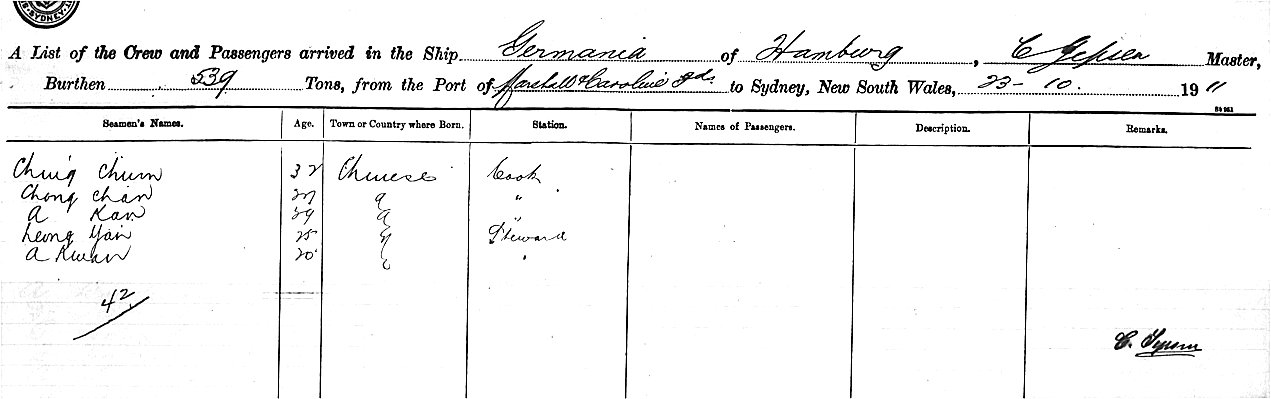 SYDNEY
A List of the Crew and Passengers arrived in the Ship Germania of Hamburg, C Jepsen Master,
Burthen 539 Tons, from the Port of Marshall & Caroline Ids to Sydney, New South Wales, 23-10. 1911
Seamen's Names. Age. Town or Country where Born. Station. Names of Passengers. Description. Remarks.
Ching Chum 32 Chinese Cook
Chong Chan 27 " "
A Kan 29 " "
Leong Yan 25 " Steward
A Kwan 20 " "
42
C. Jepsen